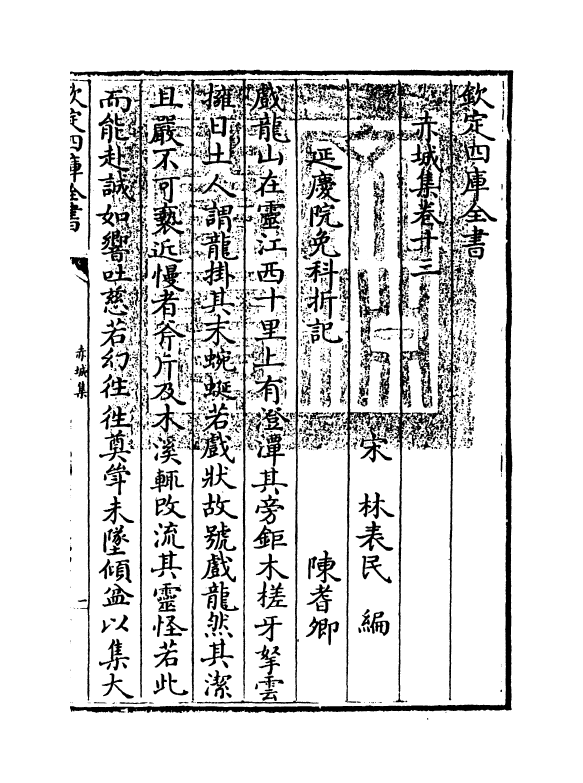 欽定四庫全書
赤城集卷十三
宋 林表民 編
延慶院免科折記
陳耆卿
戲龍山在靈江西十里上有澄潭其旁鉅木槎牙拏雲
擁日土人謂龍掛其末蜿蜒若戲狀故號戲龍然其潔
且嚴不可褻近慢者斧斤及木溪輙改流其靈怪若此
而能赴誠如響吐慈若幻徃徃奠斝未墜傾盆以集大
欽定四庫全書
赤城集
一